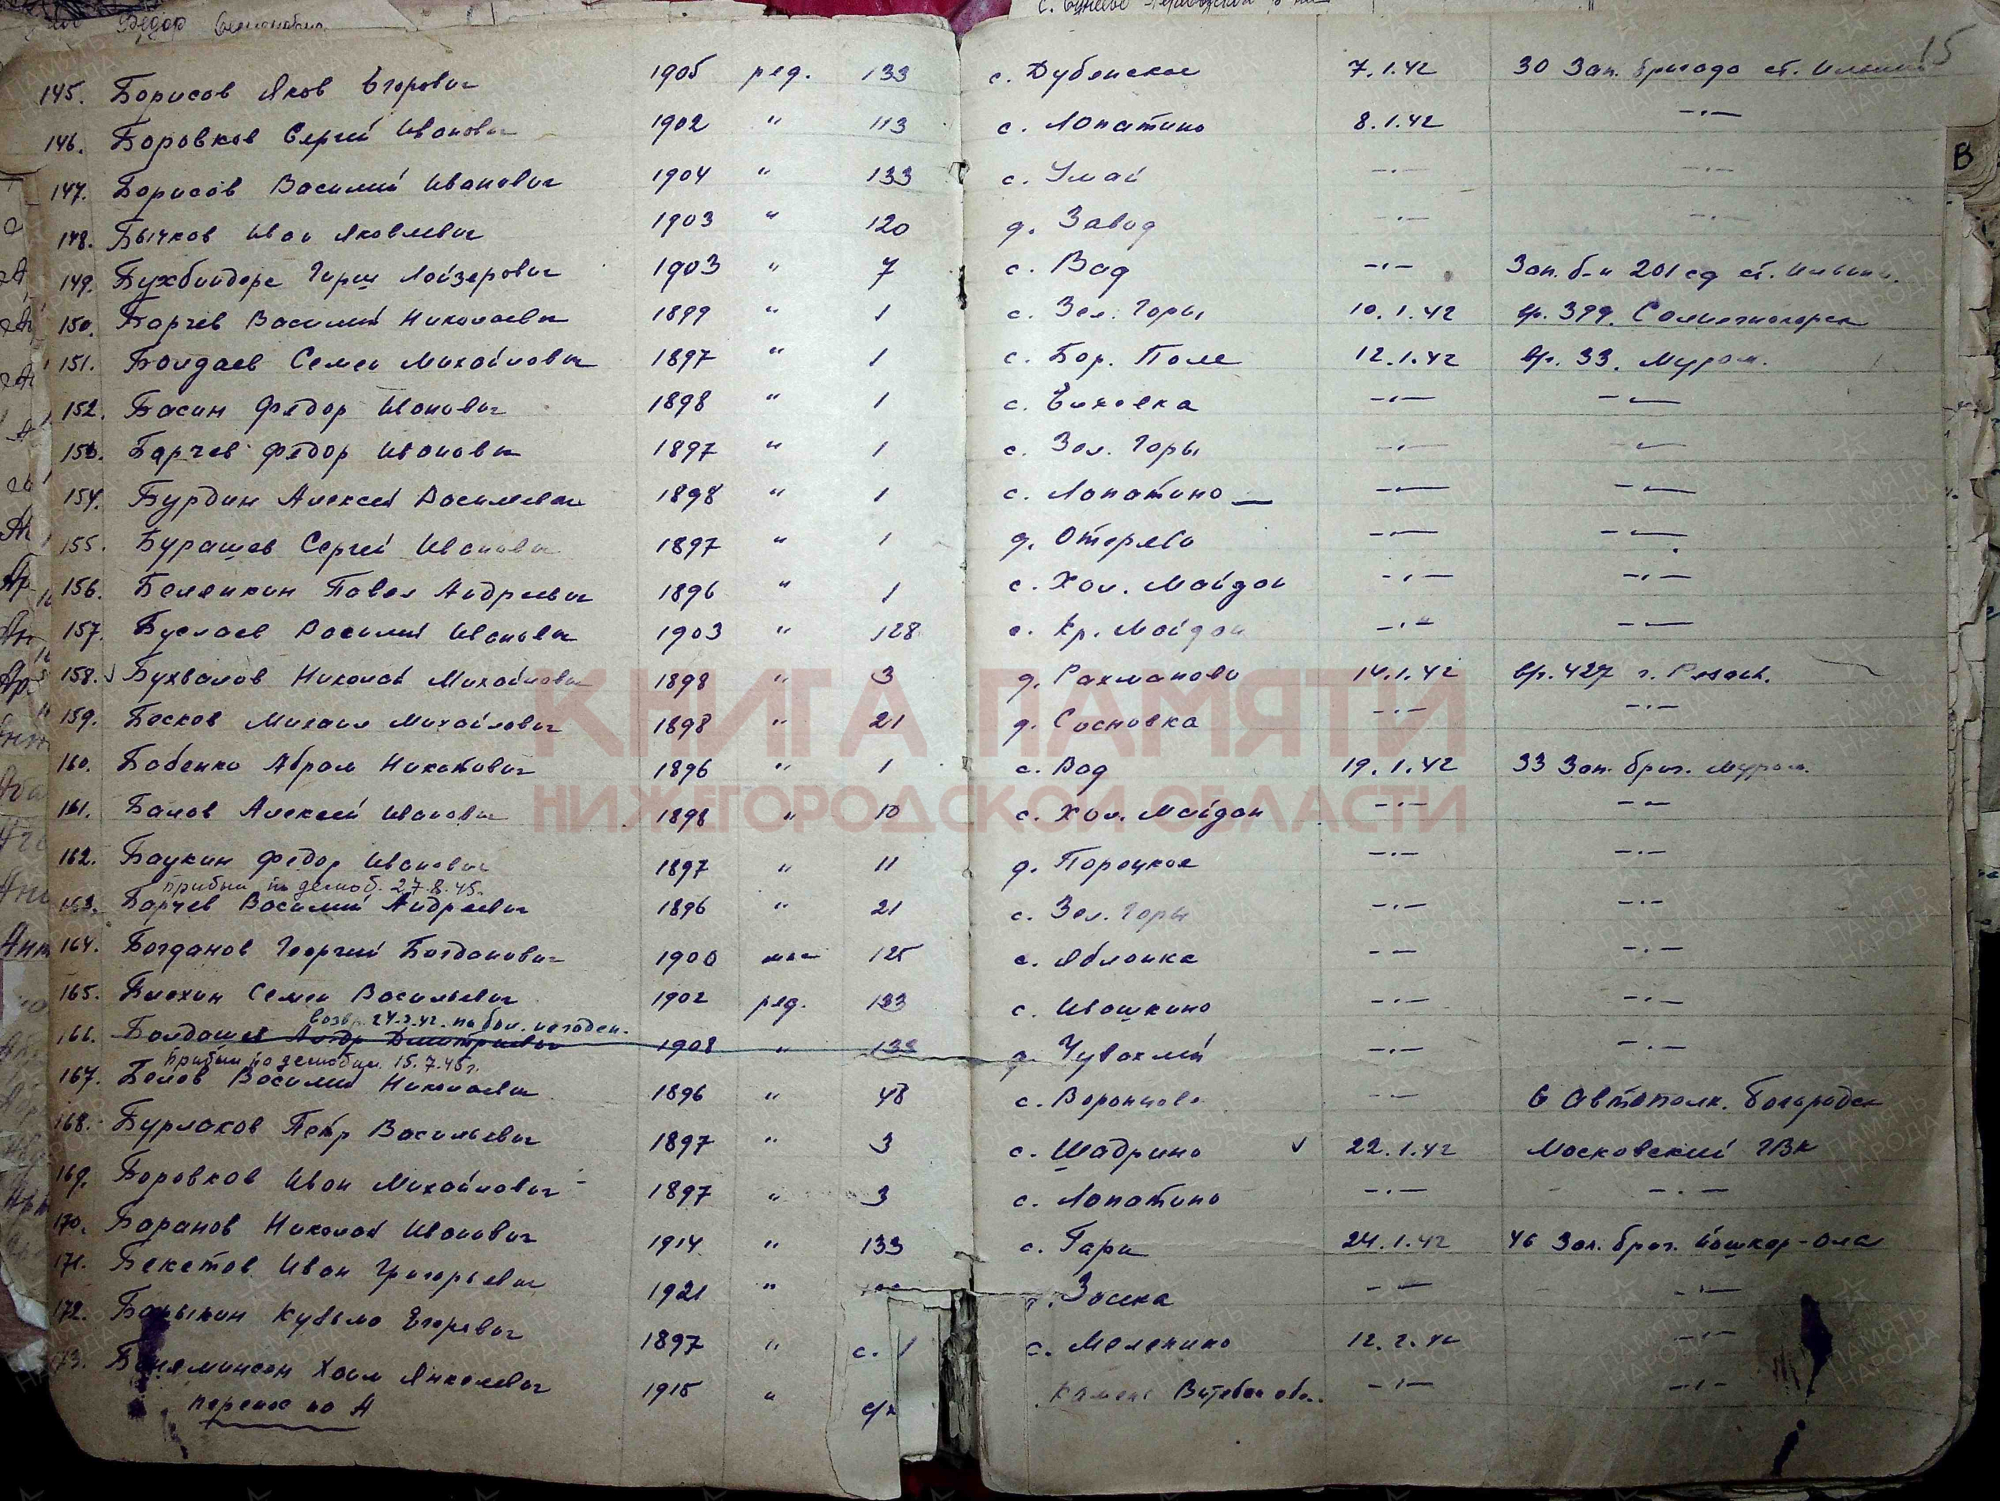 Федор Семенович
15
В
145. Борисов Яков Егорович 1905 ряд. 133 с. Дубенское 7.1.42 30 Зап. бригада ст. Ильино
146. Боровков Сергей Иванович 1902 " 113 с. Лопатино 8.1.42 -"-
147. Борисов Василий Иванович 1904 " 133 с. Умай -"- -"-
148. Бычков Иван Яковлевич 1903 " 120 д. Завод -"- -"-
149. Бухбиндере Гирш Лойзерович 1903 " 7 с. Вад -"- Зап. б-н 201 сд ст. Ильино.
150. Барчев Василий Николаевич 1899 " 1 с. Зел. Горы 10.1.42 вр. 399. Солнечногорск
151. Болдаев Семен Михайлович 1897 " 1 с. Бор. Поле 12.1.42 вр. 33. Муром.
152. Басин Федор Иванович 1898 " 1 с. Елховка -"- -"-
153. Барчев Федор Иванович 1897 " 1 с. Зел. Горы -"- -"-
154. Бурдин Алексей Васильевич 1898 " 1 с. Лопатино -"- -"-
155. Бурашев Сергей Иванович 1897 " 1 д. Отерево -"- -"-
156. Беляикин Павел Андреевич 1896 " 1 с. Хол. Майдан -"- -"-
157. Буслаев Василий Иванович 1903 " 128 с. Кр. Майдан -"- -"-
158. Бухвалов Николай Михайлович 1898 " 3 д. Рахманово 14.1.42 вр. 427 г. Рязань.
159. Басков Михаил Михайлович 1898 " 21 д. Сосновка -"- -"-
160. Бабенко Абрам Никитович 1896 " 1 с. Вад 19.1.42 33 Зап. бриг. Муром.
161. Балов Алексей Иванович 1898 " 10 с. Хол. Майдан -"- -"-
162. Баукин Федор Иванович 1897 " 11 д. Порецкое -"- -"-
прибыл по демоб. 27.8.45.
163. Барчев Василий Андреевич 1896 " 21 с. Зел. Горы -"- -"-
164. Богданов Георгий Богданович 1900 125 с. Яблонка -"- -"-
165. Блохин Семен Васильевич 1902 ряд. 133 с. Ивашкино -"- -"-
возвр. 24.2.42. по бол. негоден.
166. Болдашев Андр Дмитриевич 1908 " 133 д. Чувахлей -"- -"-
Прибыл по демобил. 15.7.45г.
167. Белов Василий Николаевич 1896 " 48 с. Воронцово -"- 6 Автополк. Богородск
168. Бурлаков Петр Васильевич 1897 " 3 с. Шадрино 22.1.42 Московский ГВК
169. Боровков Иван Михайлович 1897 " 3 с. Лопатино -"- -"-
170. Баранов Николай Иванович 1914 " 133 с. Гари 24.1.42 46 Зап. бриг. Йошкар-Ола
171. Бекетов Иван Григорьевич 1921 " Зосека -"- -"-
172. Барыкин Кузьма Егорович 1897 " с. 1 с. Меленино 12.2.42 -"-
173. Беняминсон Хаим Янкелевич 1915 " с/х Камень Витебск обл. -"- -"-
перенос на А
КНИГА ПАМЯТИ
НИЖГОРОДСКОЙ ОБЛАСТИ
ПАМЯТЬ НАРОДА